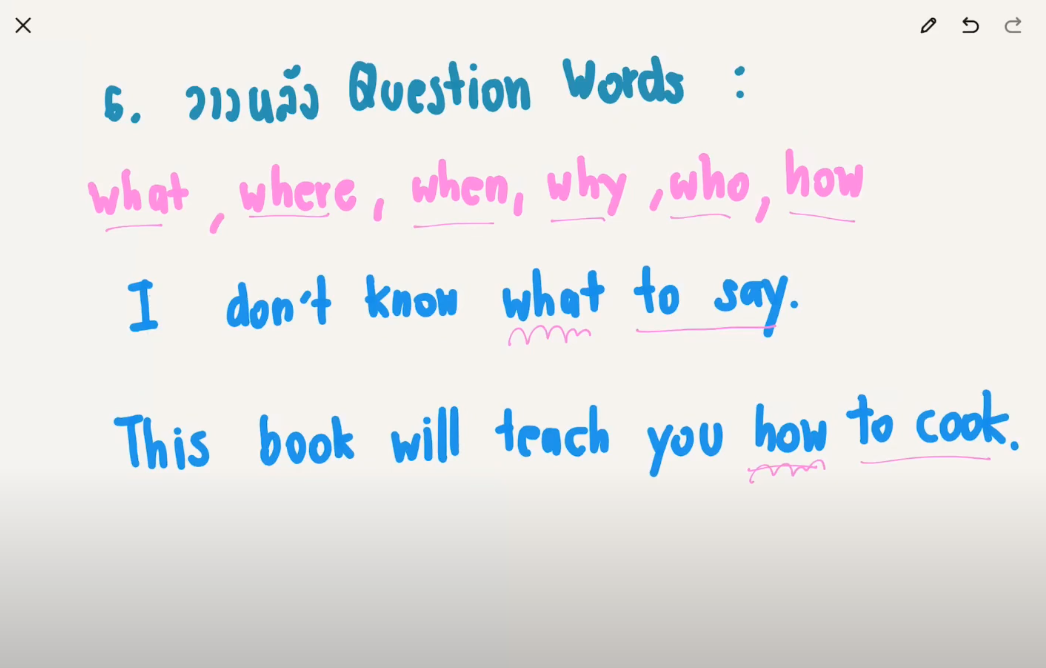 6. วางหลัง Question Words :
what, where, when, why, who, how
I don't know what to say.
This book will teach you how to cook.